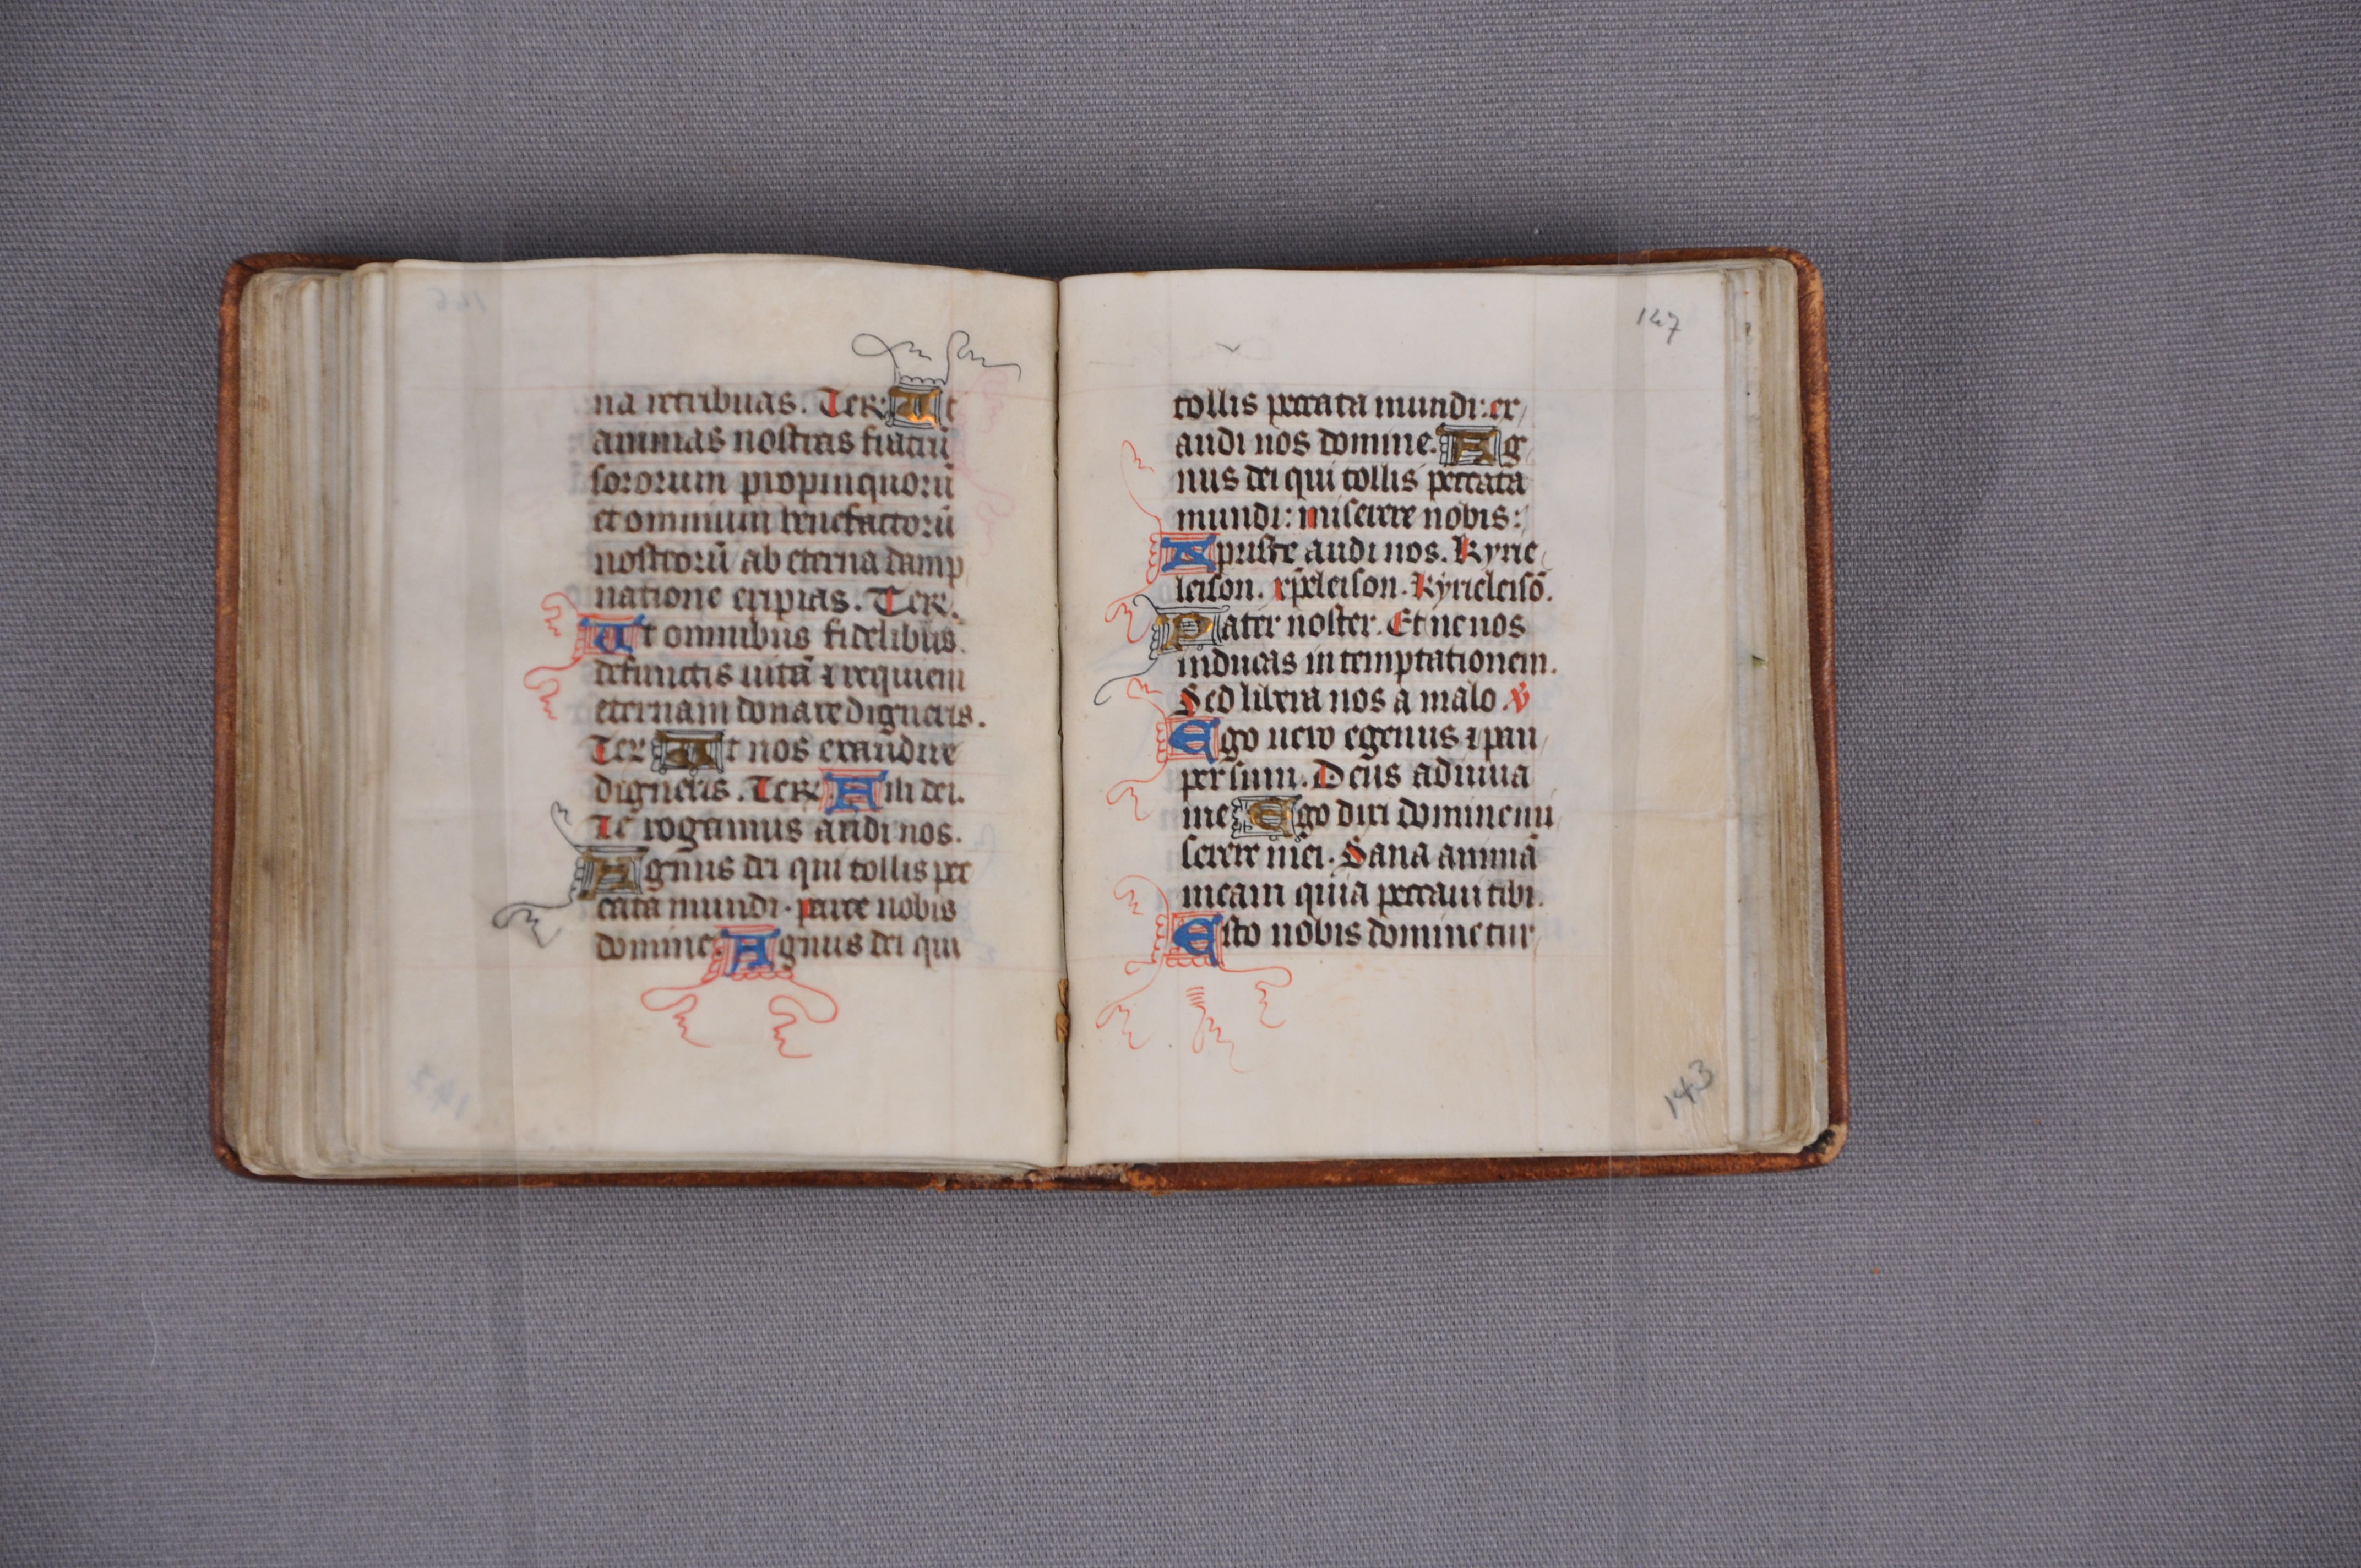 na retribuas. Te R. Ut
animas nostras fratrū
sororum propinquorū
et omnium benefactorū
nostrorū ab eterna damp
natione eripias. Te R.
Ut omnibus fidelibus
defunctis uitā ⁊ requiem
eternam donare digneris.
Te R Ut nos exaudire
digneris. Te R. Fili dei.
Te rogamus audi nos.
Agnus dei qui tollis pec
cata mundi. parce nobis
domine. Agnus dei qui
147
tollis peccata mundi: ex
audi nos domine. Ag
nus dei qui tollis peccata
mundi: miserere nobis:
Xpriste audi nos. Kyrie
leison. xp̄eleison. Kyrieleisō.
Pater noster. Et ne nos
inducas in temptationem.
Sed libera nos a malo. v̄
Ego uero egenus ⁊ pau
per sum. Deus adiuua
me Ego dixi domine mi
serere mei. Sana animā
meam quia peccaui tibi.
Esto nobis domine tur
143